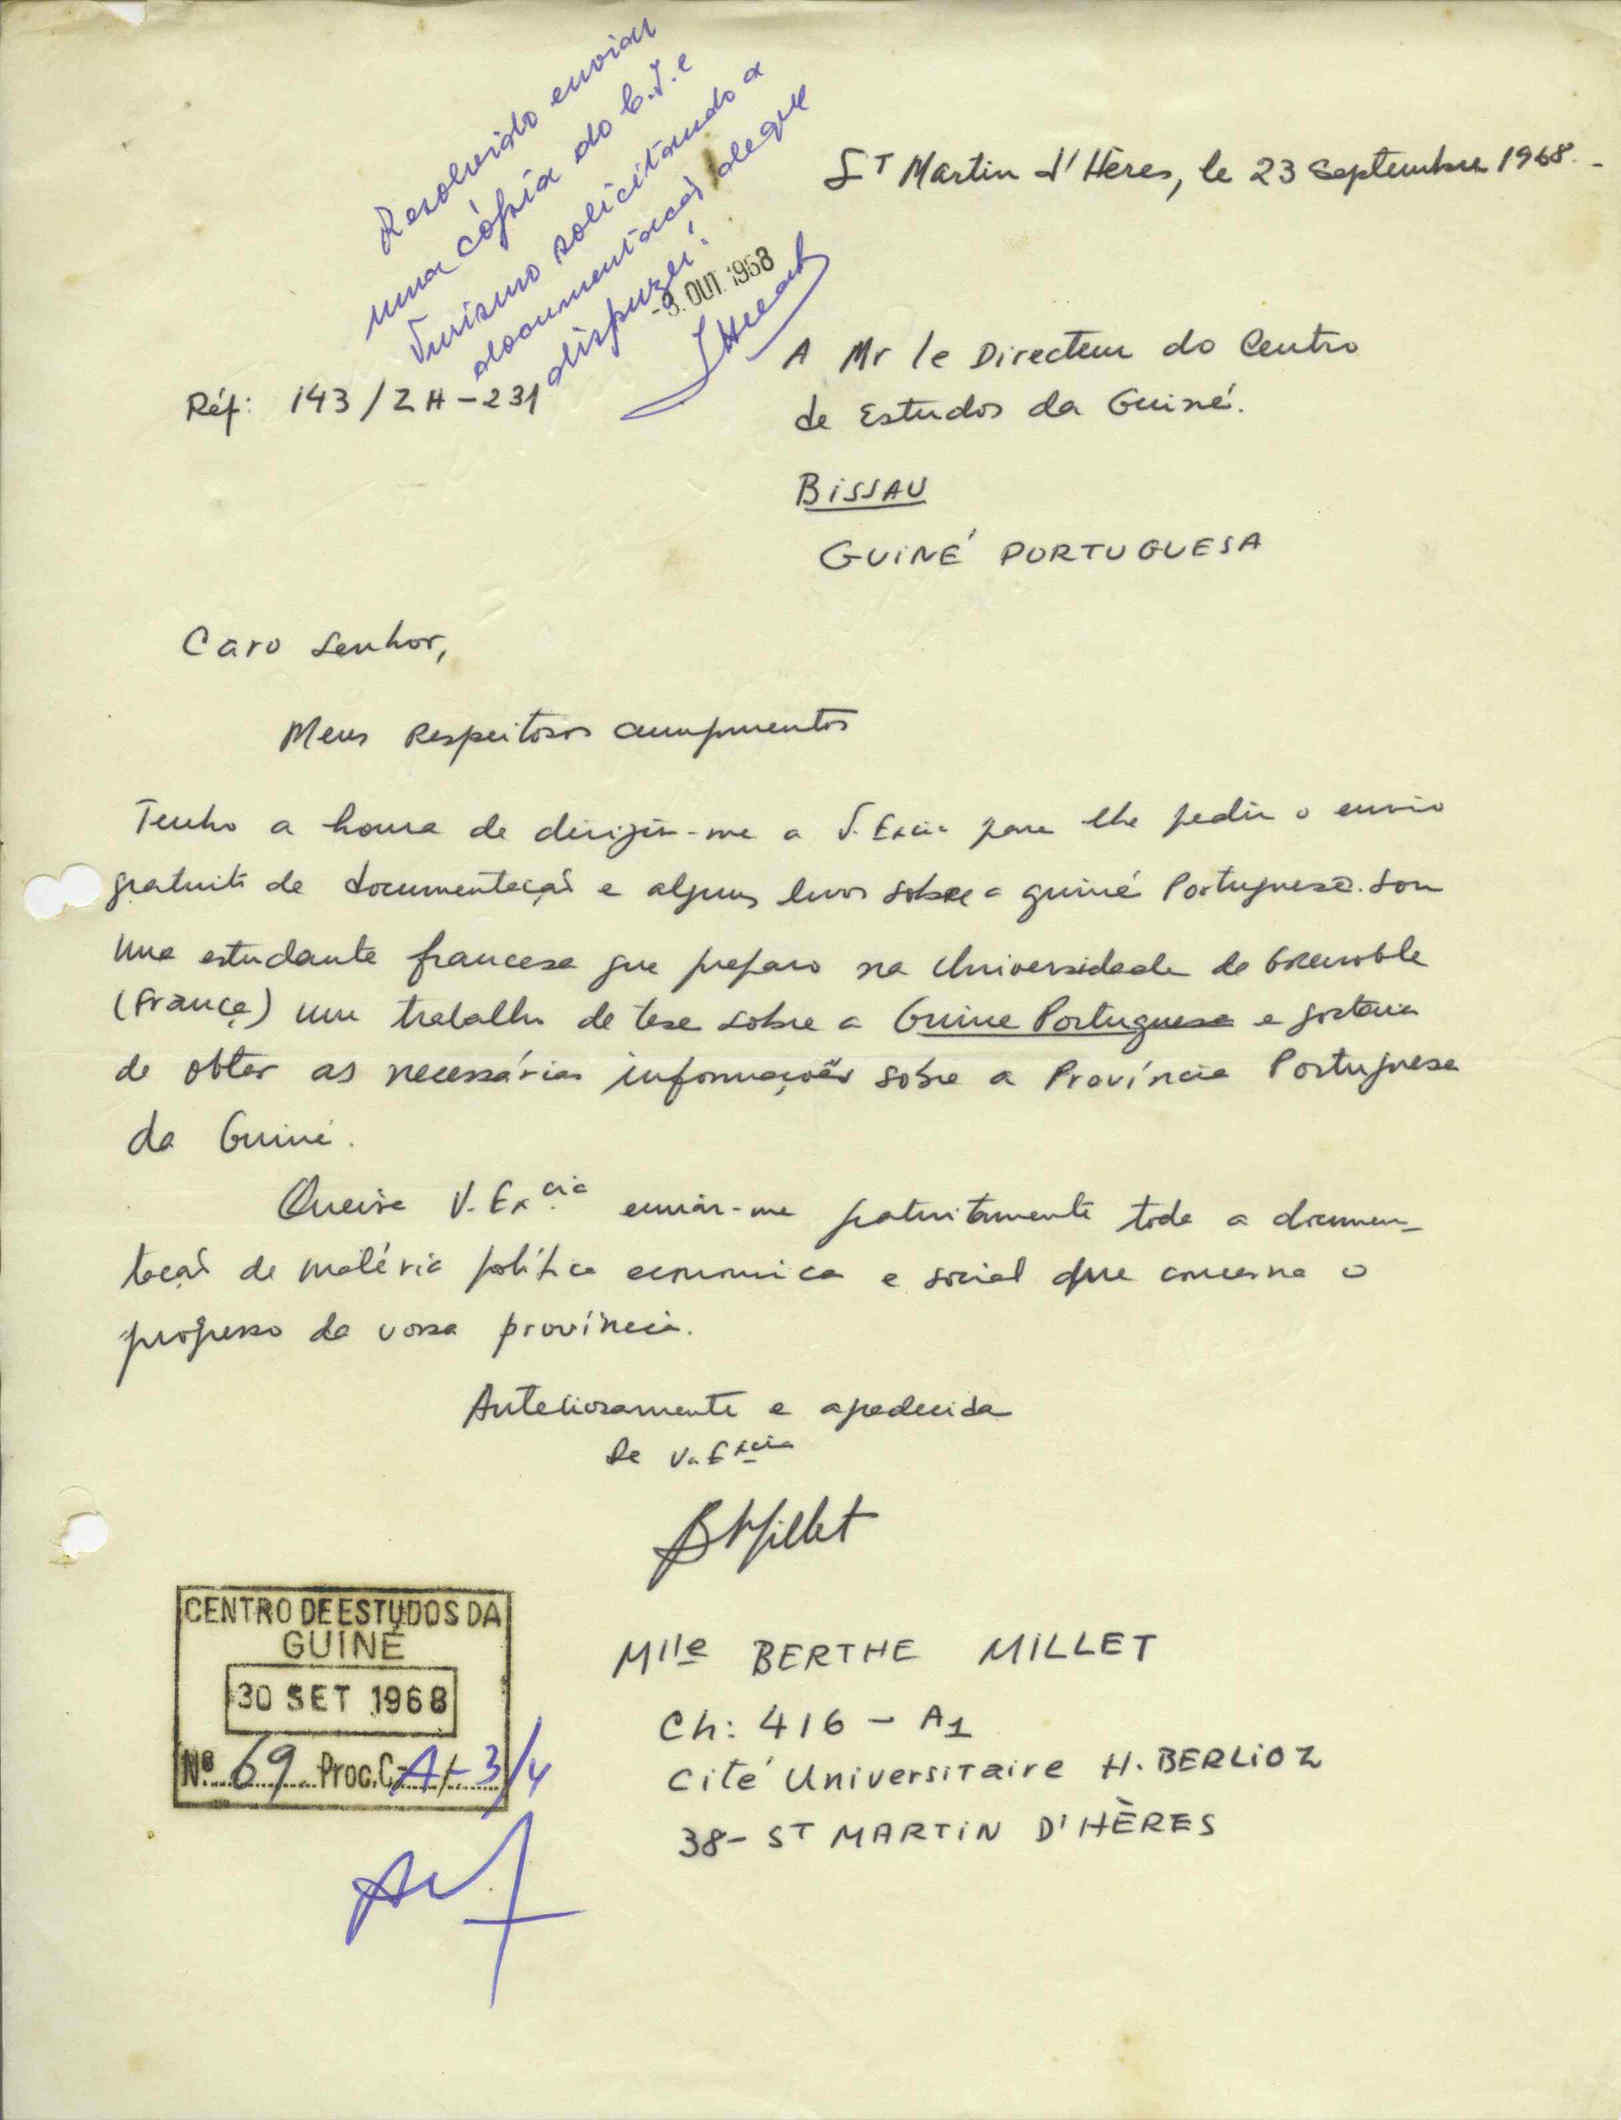 Resolvido enviar
uma cópia do C.I. e
Turismo solicitando a
documentação de que
dispuzer.
-3. OUT. 1968
ST Martin d'Hères, le 23 Septembre 1968.-
Réf: 143/ZH-231
A Mr le Directeur do Centro
de Estudos da Guiné.
BISSAU
GUINÉ PORTUGUESA
Caro Senhor,
Meus Respeitosos cumprimentos
Tenho a honra de dirigir-me a V. Excia para lhe pedir o envio
gratuito de documentação e alguns livros sobre a guiné Portuguesa. Sou
uma estudante francesa que preparo na Universidade de Grenoble
(França) um trabalho de tese sobre a Guine Portuguesa e gostaria
de obter as necessárias informações sobre a Província Portuguesa
da Guiné.
Queira V. Excia enviar-me gratuitamente toda a documen-
tação de matéria política economica e social que concerne o
progresso da vossa província.
Antecios­amente e agradecida
De V. Excia
B Millet
CENTRO DE ESTUDOS DA
GUINÉ
30 SET 1968
Nº 69 Proc. C-A/-3/4
Mlle BERTHE MILLET
Ch: 416 - A1
Cité Universitaire H. BERLIOZ
38- ST MARTIN D'HÈRES